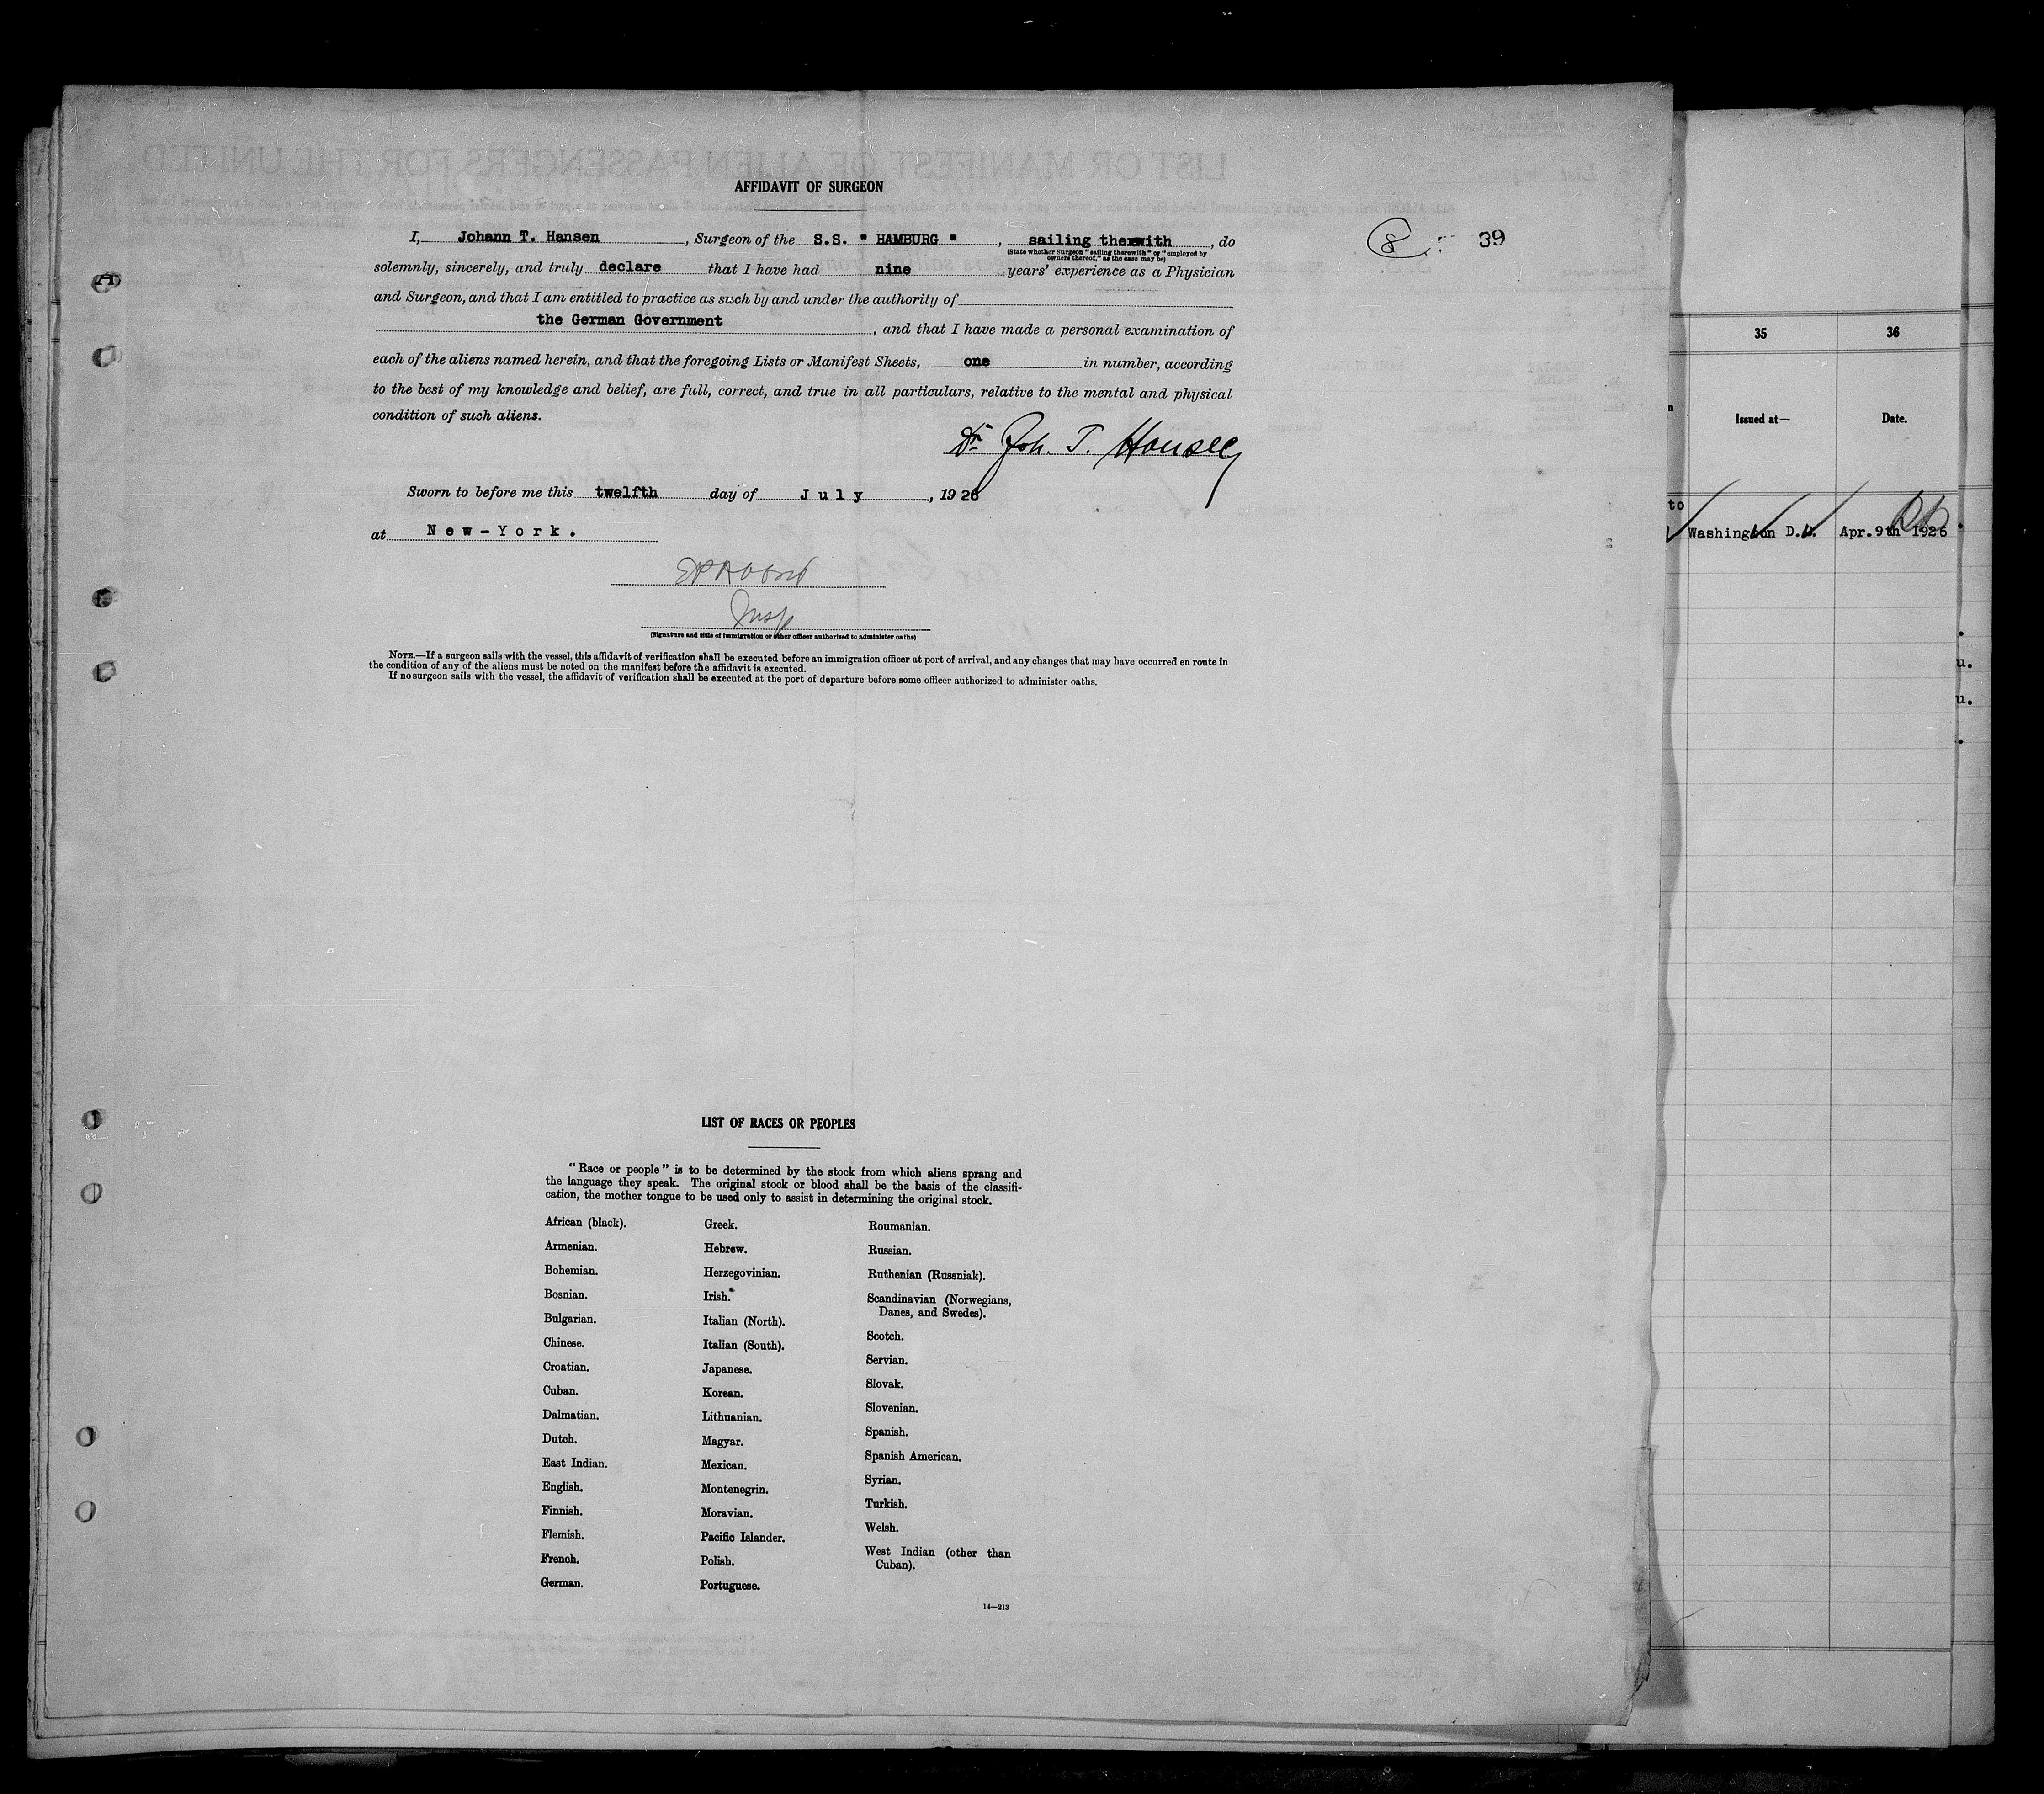 AFFIDAVIT OF SURGEON
I, Johann T. Hansen, Surgeon of the S.S. " HAMBURG ", sailing therewith, do
(State whether Surgeon "sailing therewith" or "employed by
owners thereof," as the case may be)
solemnly, sincerely, and truly declare that I have had nine years' experience as a Physician
and Surgeon, and that I am entitled to practice as such by and under the authority of
the German Government, and that I have made a personal examination of
each of the aliens named herein, and that the foregoing Lists or Manifest Sheets, one in number, according
to the best of my knowledge and belief, are full, correct, and true in all particulars, relative to the mental and physical
condition of such aliens.
Dr. Joh. T. Hansen
Sworn to before me this twelfth day of July, 1926
at New-York.
Insp
(Signature and title of immigration or other officer authorized to administer oaths)
NOTE.—If a surgeon sails with the vessel, this affidavit of verification shall be executed before an immigration officer at port of arrival, and any changes that may have occurred en route in
the condition of any of the aliens must be noted on the manifest before the affidavit is executed.
If no surgeon sails with the vessel, the affidavit of verification shall be executed at the port of departure before some officer authorized to administer oaths.
8 39
LIST OF RACES OR PEOPLES
"Race or people" is to be determined by the stock from which aliens sprang and
the language they speak. The original stock or blood shall be the basis of the classifi-
cation, the mother tongue to be used only to assist in determining the original stock.
African (black).
Armenian.
Bohemian.
Bosnian.
Bulgarian.
Chinese.
Croatian.
Cuban.
Dalmatian.
Dutch.
East Indian.
English.
Finnish.
Flemish.
French.
German.
Greek.
Hebrew.
Herzegovinian.
Irish.
Italian (North).
Italian (South).
Japanese.
Korean.
Lithuanian.
Magyar.
Mexican.
Montenegrin.
Moravian.
Pacific Islander.
Polish.
Portuguese.
Roumanian.
Russian.
Ruthenian (Russniak).
Scandinavian (Norwegians,
Danes, and Swedes).
Scotch.
Servian.
Slovak.
Slovenian.
Spanish.
Spanish American.
Syrian.
Turkish.
Welsh.
West Indian (other than
Cuban).
14—213
35 36
Issued at— Date.
to
Washington D.C. Apr. 9th 1926
u.
u.